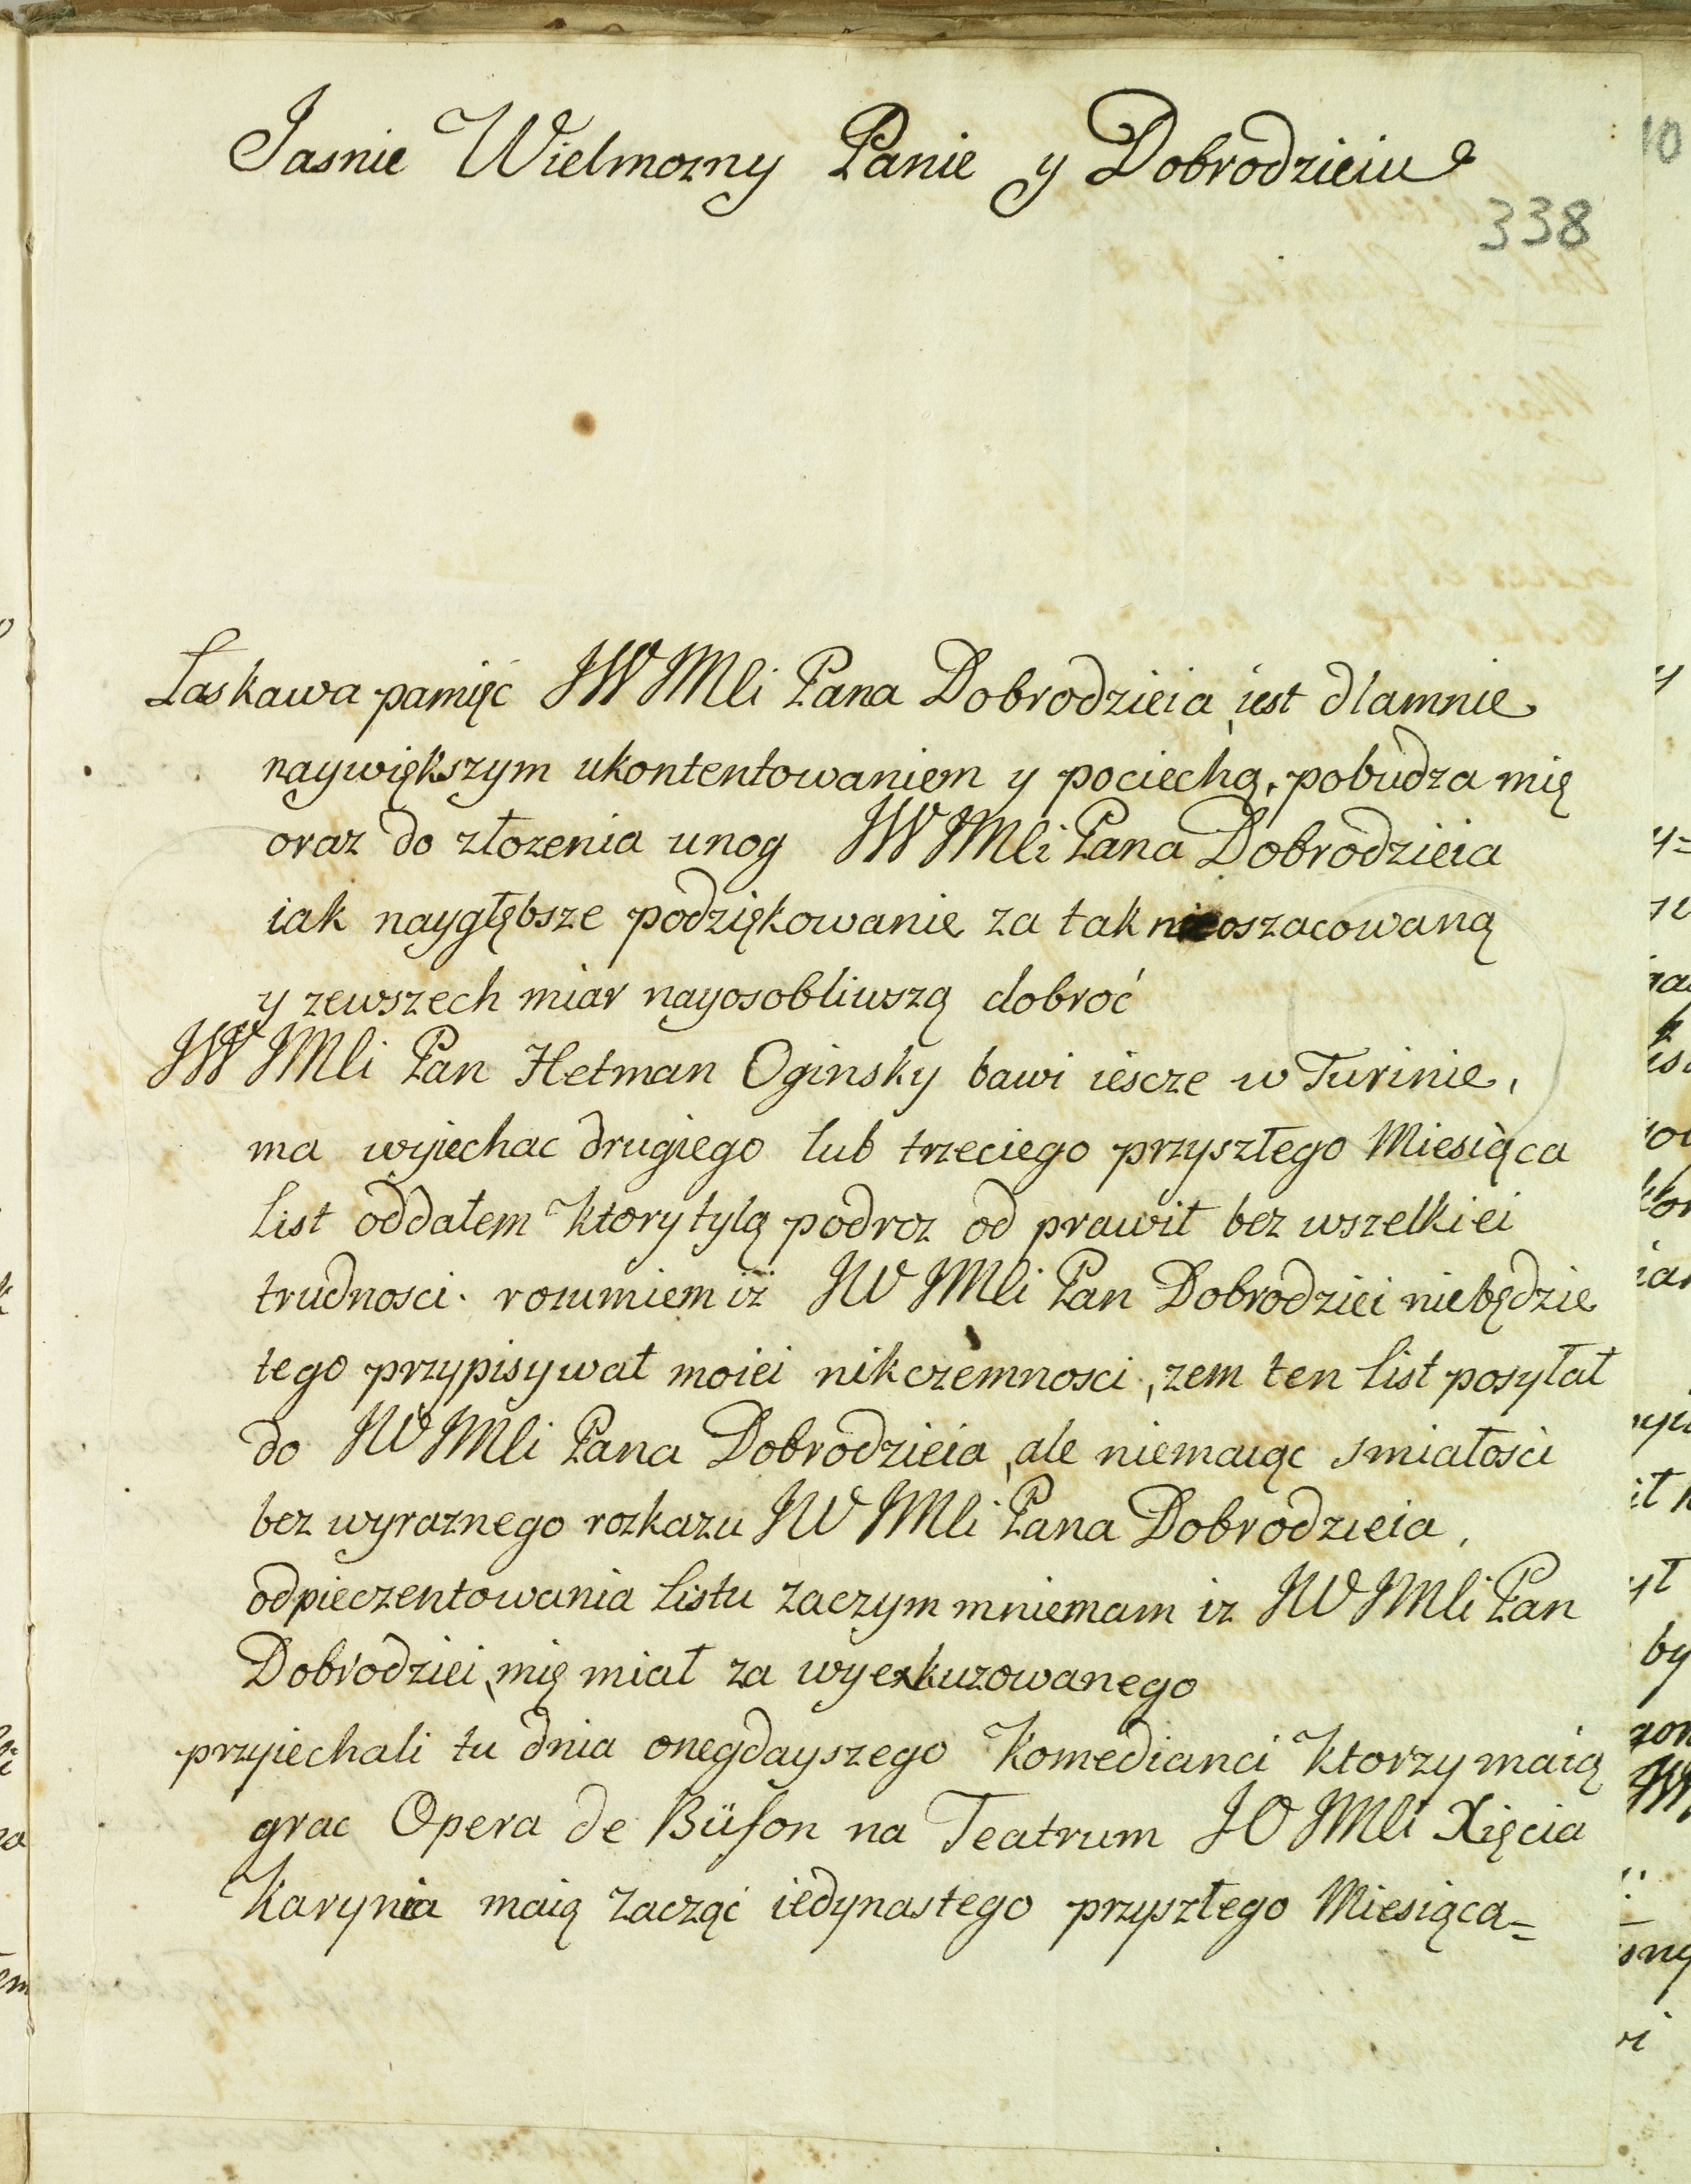 Jasnie Wielmozny Panie y Dobrodzieiu
338
Łaskawa pamięć JW JMli Pana Dobrodzieia, iest dlamnie
naywiększym ukontentowaniem y pociechą, pobudza mię
oraz do złozenia unog JW JMli Pana Dobrodzieia
iak naygłębsze podziękowanie za tak nieoszacowaną
y zewszech miar nayosobliwszą dobroć
JW JMli Pan Hetman Oginsky bawi iescze w Turinie,
ma wyiechac drugiego lub trzeciego przyszłego Miesiąca
List oddałem ktory tylą podroz od prawił bez wszelkiei
trudnosci. rozumiem iż JW JMli Pan Dobrodziei niebędzie
tego przypisywał moiei nikczemnosci, zem ten List posyłał
do JW JMli Pana Dobrodzieia, ale niemaiąc smiałosci
bez wyraznego rozkazu JW JMli Pana Dobrodzieia,
odpieczentowania Listu zaczym mniemam iz JW JMli Pan
Dobrodziei, mię miał za wyexkuzowanego
przyiechali tu dnia onegdayszego Komedianci Ktorzy maią
grac Opera de Büfon na Teatrum JO JMli Xięcia
Karynia maią zacząć iedynastego przyszłego Miesiąca=
10